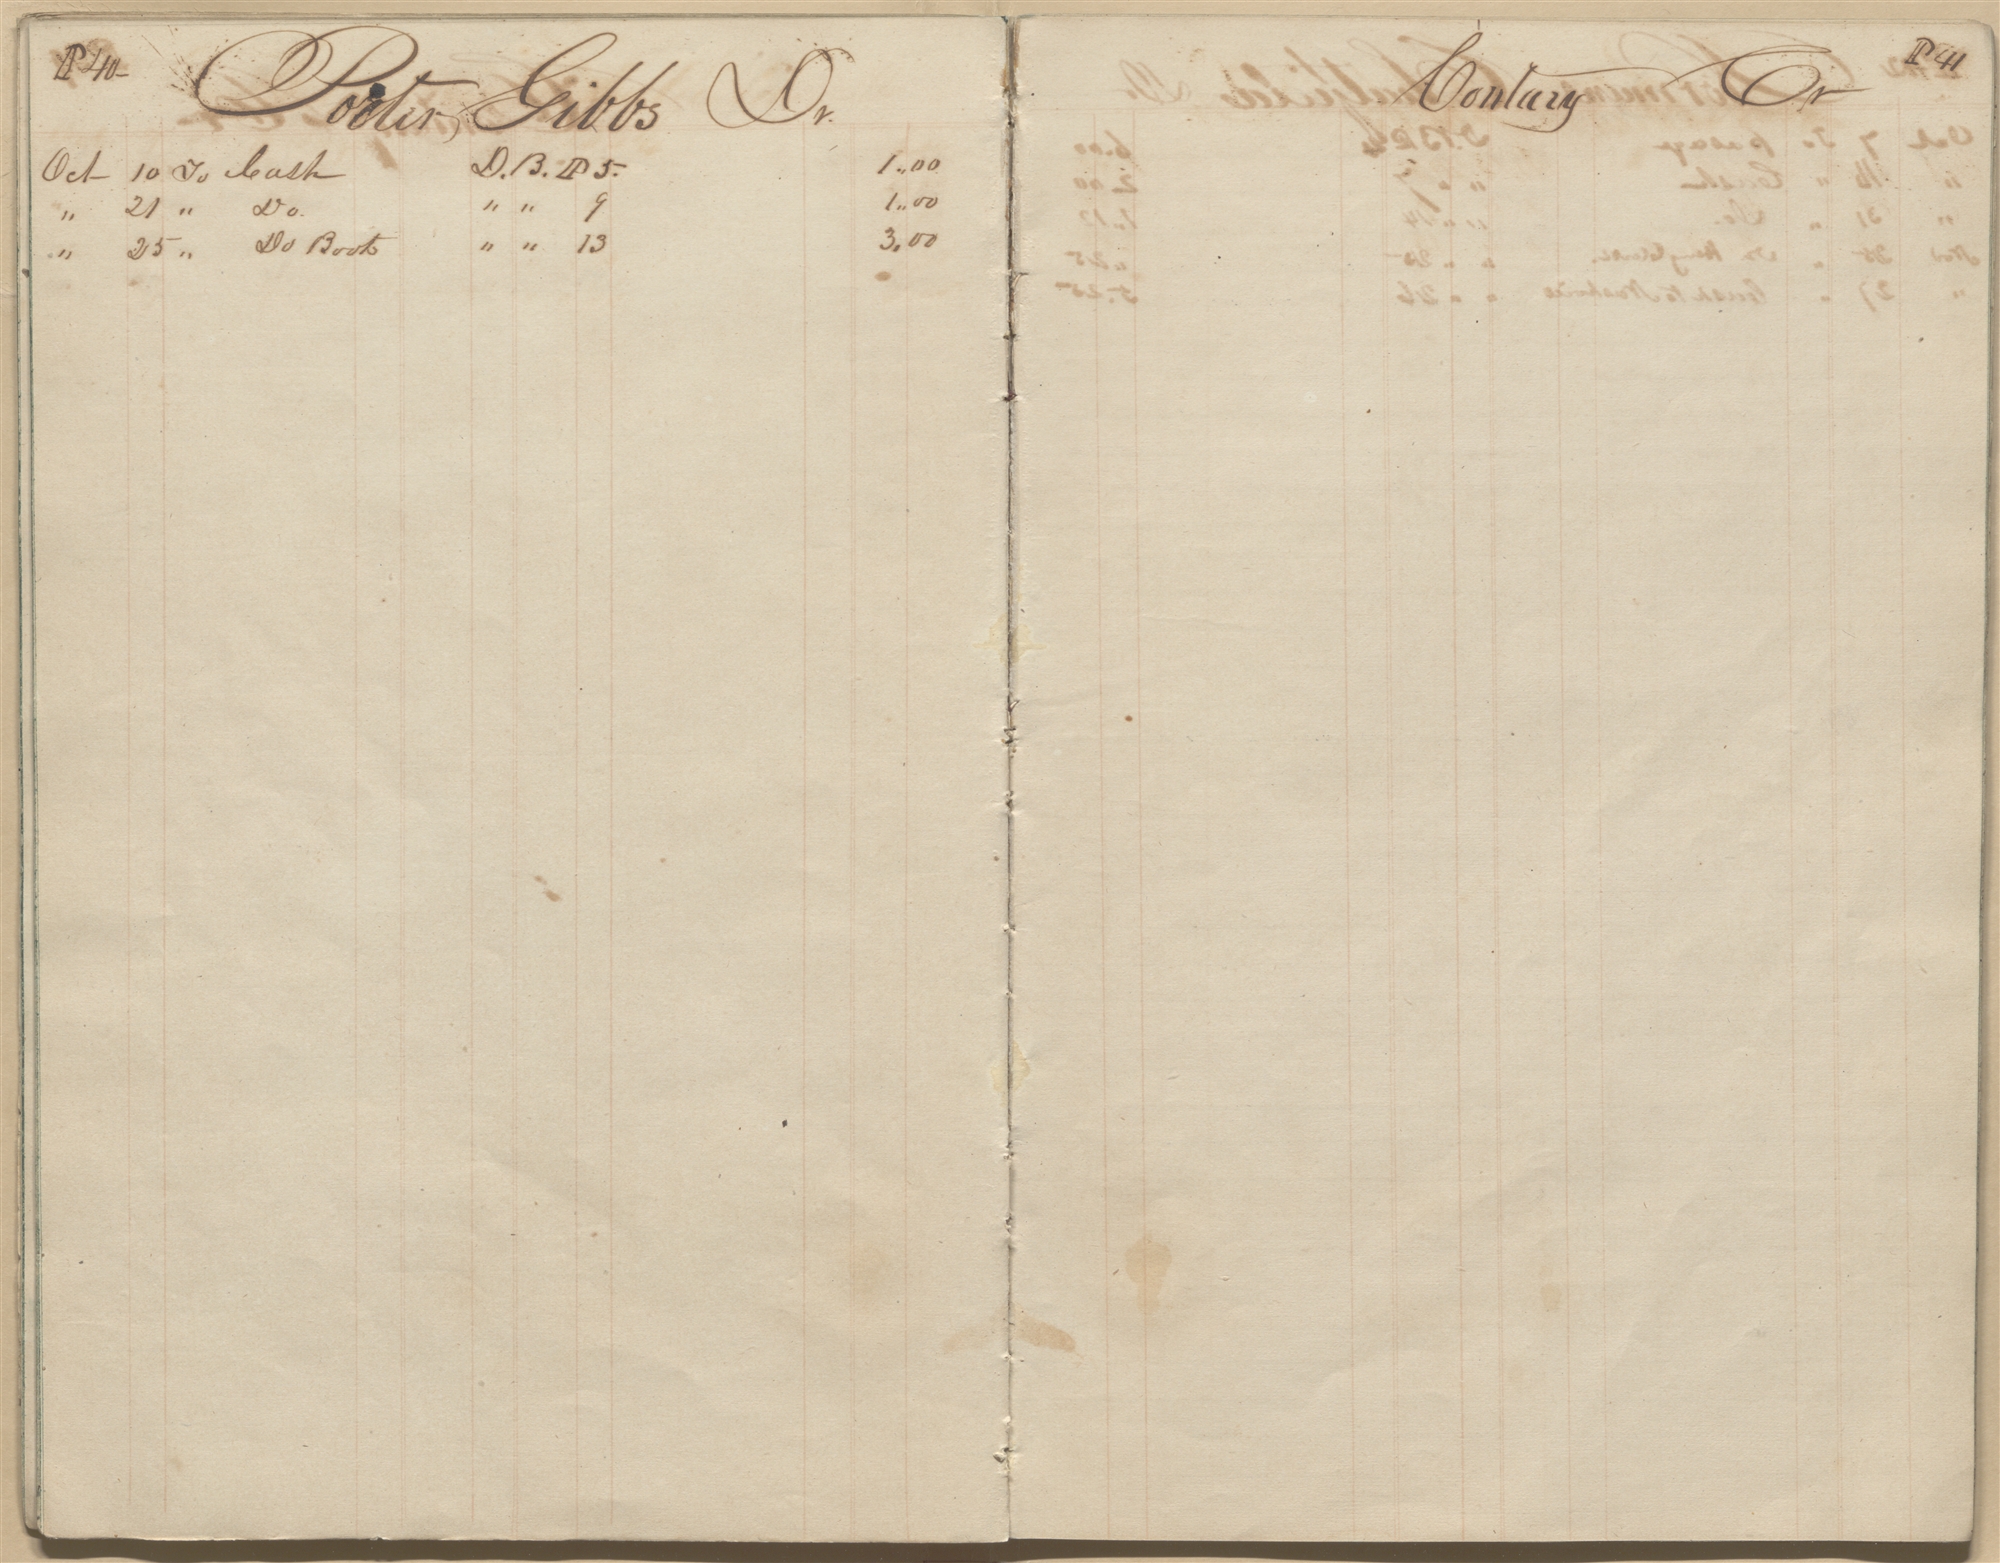 P 40-
Porter Gibbs Dr.
Oct 10 To Cash D. B. P 5. 1.,00
" 21 " Do. " " 9 1.,00
" 25 " Do Boots " " 13 3.,00
P 41
Contary Cr